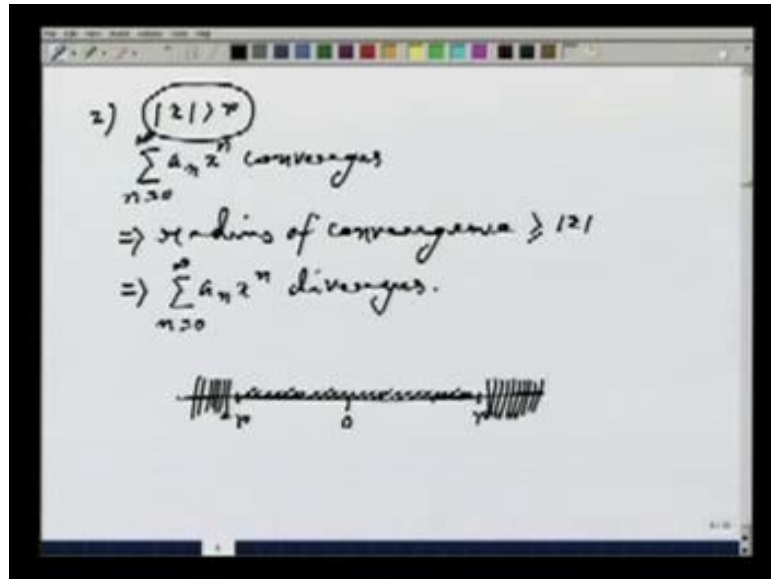 2) |z| > r
∞
∑ aₙ zⁿ converges
n=0
=> radius of convergence ≥ |z|
∞
=> ∑ aₙ zⁿ diverges.
n=0
-r 0 r